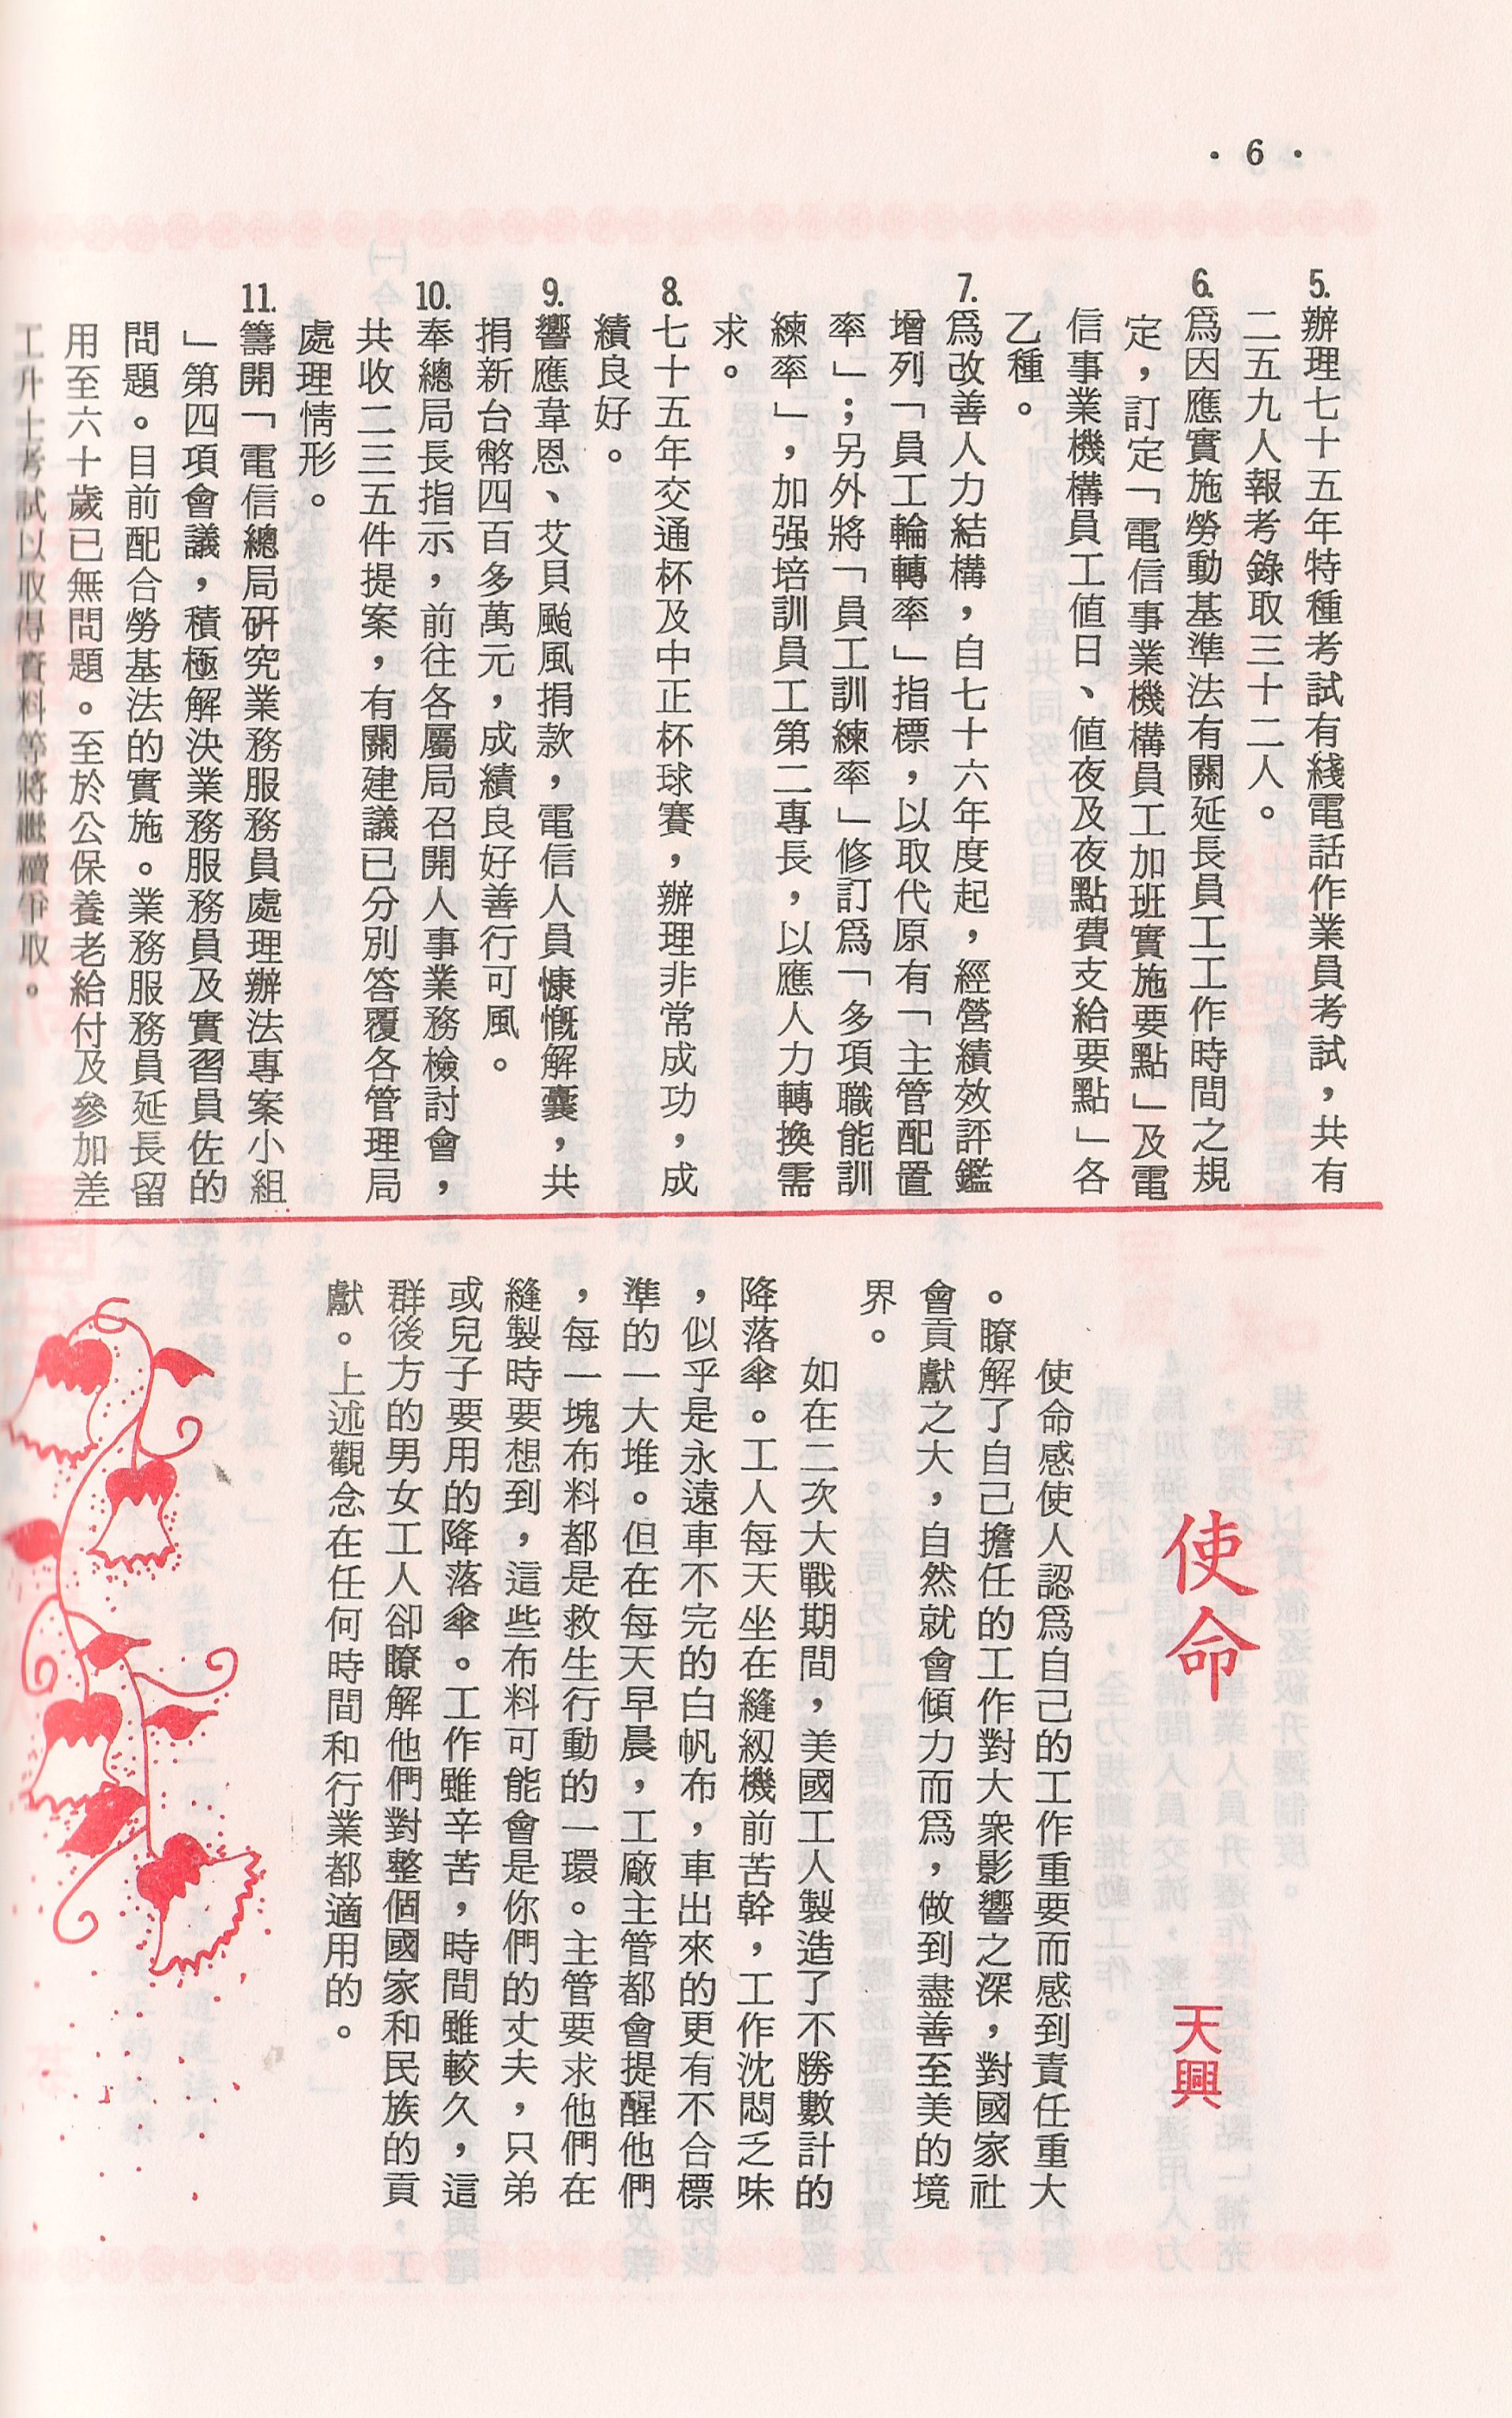 ·6·
5.辦理七十五年特種考試有綫電話作業員考試，共有
二五九人報考錄取三十二人。
6.爲因應實施勞動基準法有關延長員工工作時間之規
定，訂定「電信事業機構員工加班實施要點」及電
信事業機構員工値日、値夜及夜點費支給要點」各
乙種。
7.爲改善人力結構，自七十六年度起，經營績效評鑑
增列「員工輪轉率」指標，以取代原有「主管配置
率」；另外將「員工訓練率」修訂爲「多項職能訓
練率」，加强培訓員工第二專長，以應人力轉換需
求。
8.七十五年交通杯及中正杯球賽，辦理非常成功，成
績良好。
9.響應韋恩、艾貝颱風捐款，電信人員慷慨解囊，共
捐新台幣四百多萬元，成績良好善行可風。
10.奉總局長指示，前往各屬局召開人事業務檢討會，
共收二三五件提案，有關建議已分別答覆各管理局
處理情形。
11.籌開「電信總局研究業務服務員處理辦法專案小組
」第四項會議，積極解決業務服務員及實習員佐的
問題。目前配合勞基法的實施。業務服務員延長留
用至六十歲已無問題。至於公保養老給付及參加差
工升士考試以取得資料等將繼續爭取。
使命
天興
使命感使人認爲自己的工作重要而感到責任重大
。瞭解了自己擔任的工作對大衆影響之深，對國家社
會貢獻之大，自然就會傾力而爲，做到盡善至美的境
界。
如在二次大戰期間，美國工人製造了不勝數計的
降落傘。工人每天坐在縫紉機前苦幹，工作沈悶乏味
，似乎是永遠車不完的白帆布，車出來的更有不合標
準的一大堆。但在每天早晨，工廠主管都會提醒他們
，每一塊布料都是救生行動的一環。主管要求他們在
縫製時要想到，這些布料可能會是你們的丈夫，只弟
或兒子要用的降落傘。工作雖辛苦，時間雖較久，這
群後方的男女工人卻瞭解他們對整個國家和民族的貢
獻。上述觀念在任何時間和行業都適用的。